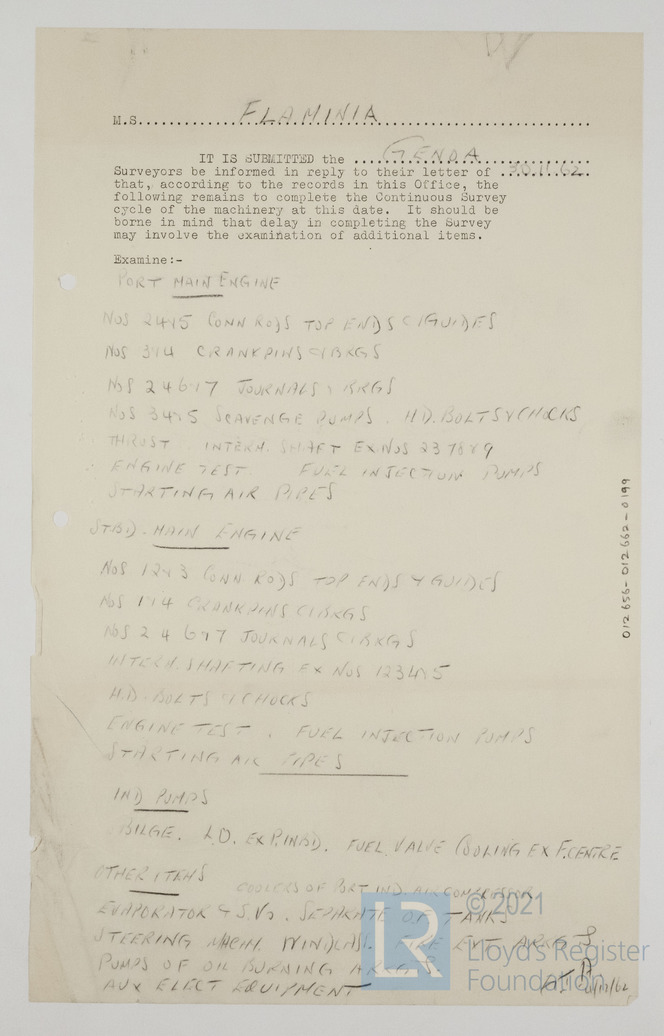 M.S. FLAMINIA
IT IS SUBMITTED the GENOA
Surveyors be informed in reply to their letter of 30.11.62
that, according to the records in this Office, the
following remains to complete the Continuous Survey
cycle of the machinery at this date. It should be
borne in mind that delay in completing the Survey
may involve the examination of additional items.
Examine:-
PORT MAIN ENGINE
NOS 2 4 & 5 CONN RODS TOP ENDS & GUIDES
NOS 3 & 4 CRANKPINS & BRGS
NOS 2 4 6 & 7 JOURNALS & BRGS
NOS 3 4 & 5 SCAVENGE PUMPS . H.D. BOLTS & CHOCKS
THRUST . INTERM. SHAFT EX NOS 2 3 7 8 & 9
ENGINE TEST . FUEL INJECTION PUMPS
STARTING AIR PIPES
STBD. MAIN ENGINE
NOS 1 2 & 3 CONN RODS TOP ENDS & GUIDES
NOS 1 & 4 CRANKPINS & BRGS
NOS 2 4 6 & 7 JOURNALS & BRGS
INTERM. SHAFTING EX NOS 1 2 3 4 & 5
H.D. BOLTS & CHOCKS
ENGINE TEST . FUEL INJECTION PUMPS
STARTING AIR PIPES
IND PUMPS
BILGE . L.O. EX P. INBD . FUEL VALVE COOLING EX F. CENTRE
OTHER ITEMS COOLERS OF PORT IND. AIR COMPRESSOR
EVAPORATOR & S.VS . SEPARATE O.F. TANKS
STEERING MACHY. WINDLASS. FIRE EXT ARRGTS
PUMPS OF OIL BURNING ARRGTS.
AUX ELECT EQUIPMENT
012656-012662-0199
LR
© 2021
Lloyd's Register
Foundation